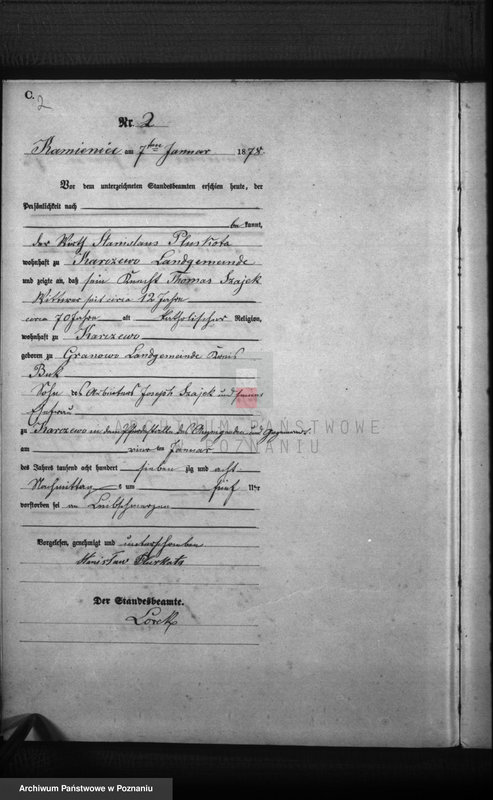 C.
2
Nr. 2
Kamieniec am 7ten Januar 1878.
Vor dem unterzeichneten Standesbeamten erschien heute, der
Persönlichkeit nach
be kannt,
der Wirth Stanislaus Pluskota
wohnhaft zu Karczewo Landgemeinde
und zeigte an, daß sein Knecht Thomas Szajek
Wittwer seit circa 12 Jahre
circa 70 Jahre alt katholischer Religion,
wohnhaft zu Karczewo
geboren zu Granowo Landgemeinde Kreis
Buk
Sohn des Arbeiters Joseph Szajek und seiner
Ehefrau
zu Karczewo in der des
am vier ten Januar
des Jahres tausend acht hundert sieben zig und acht
Nachmittag s um fünf Uhr
verstorben sei an
Vorgelesen, genehmigt und unterschrieben
Stanisław Pluskota
Der Standesbeamte.
Lorek
ARCHIWUM PAŃSTWOWE
W POZNANIU
Archiwum Państwowe w Poznaniu